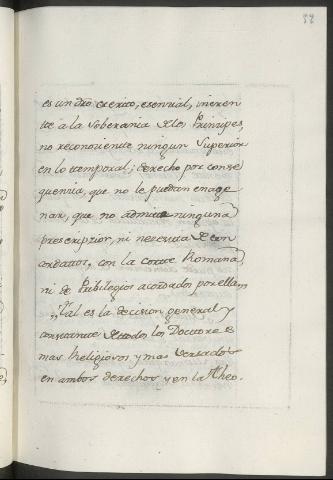 es un dro escrito, esencial, ineren
te a la Soberania de los Principes,
no reconociente ningun Superior
en lo temporal; derecho por conse
quencia, que no le puedan enage
nar, que no admite ninguna
prescripzion, ni necesita de con
cordatos, con la corte Romana,
ni de Pribilegios acordados por ella,,
,,Tal es la decision general y
constante de todos los Doctores
mas Religiosos y mas versados
en ambos derechos y en la Theo.